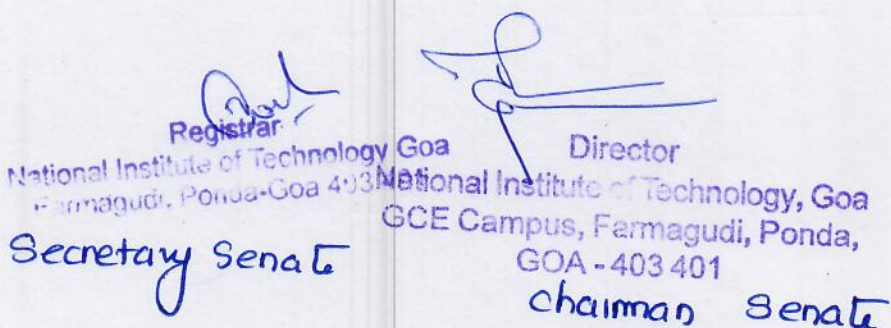 Registrar
National Institute of Technology Goa
Farmagudi, Ponda-Goa
Secretary Senate
Director
National Institute of Technology, Goa
GCE Campus, Farmagudi, Ponda,
GOA - 403 401
Chairman Senate